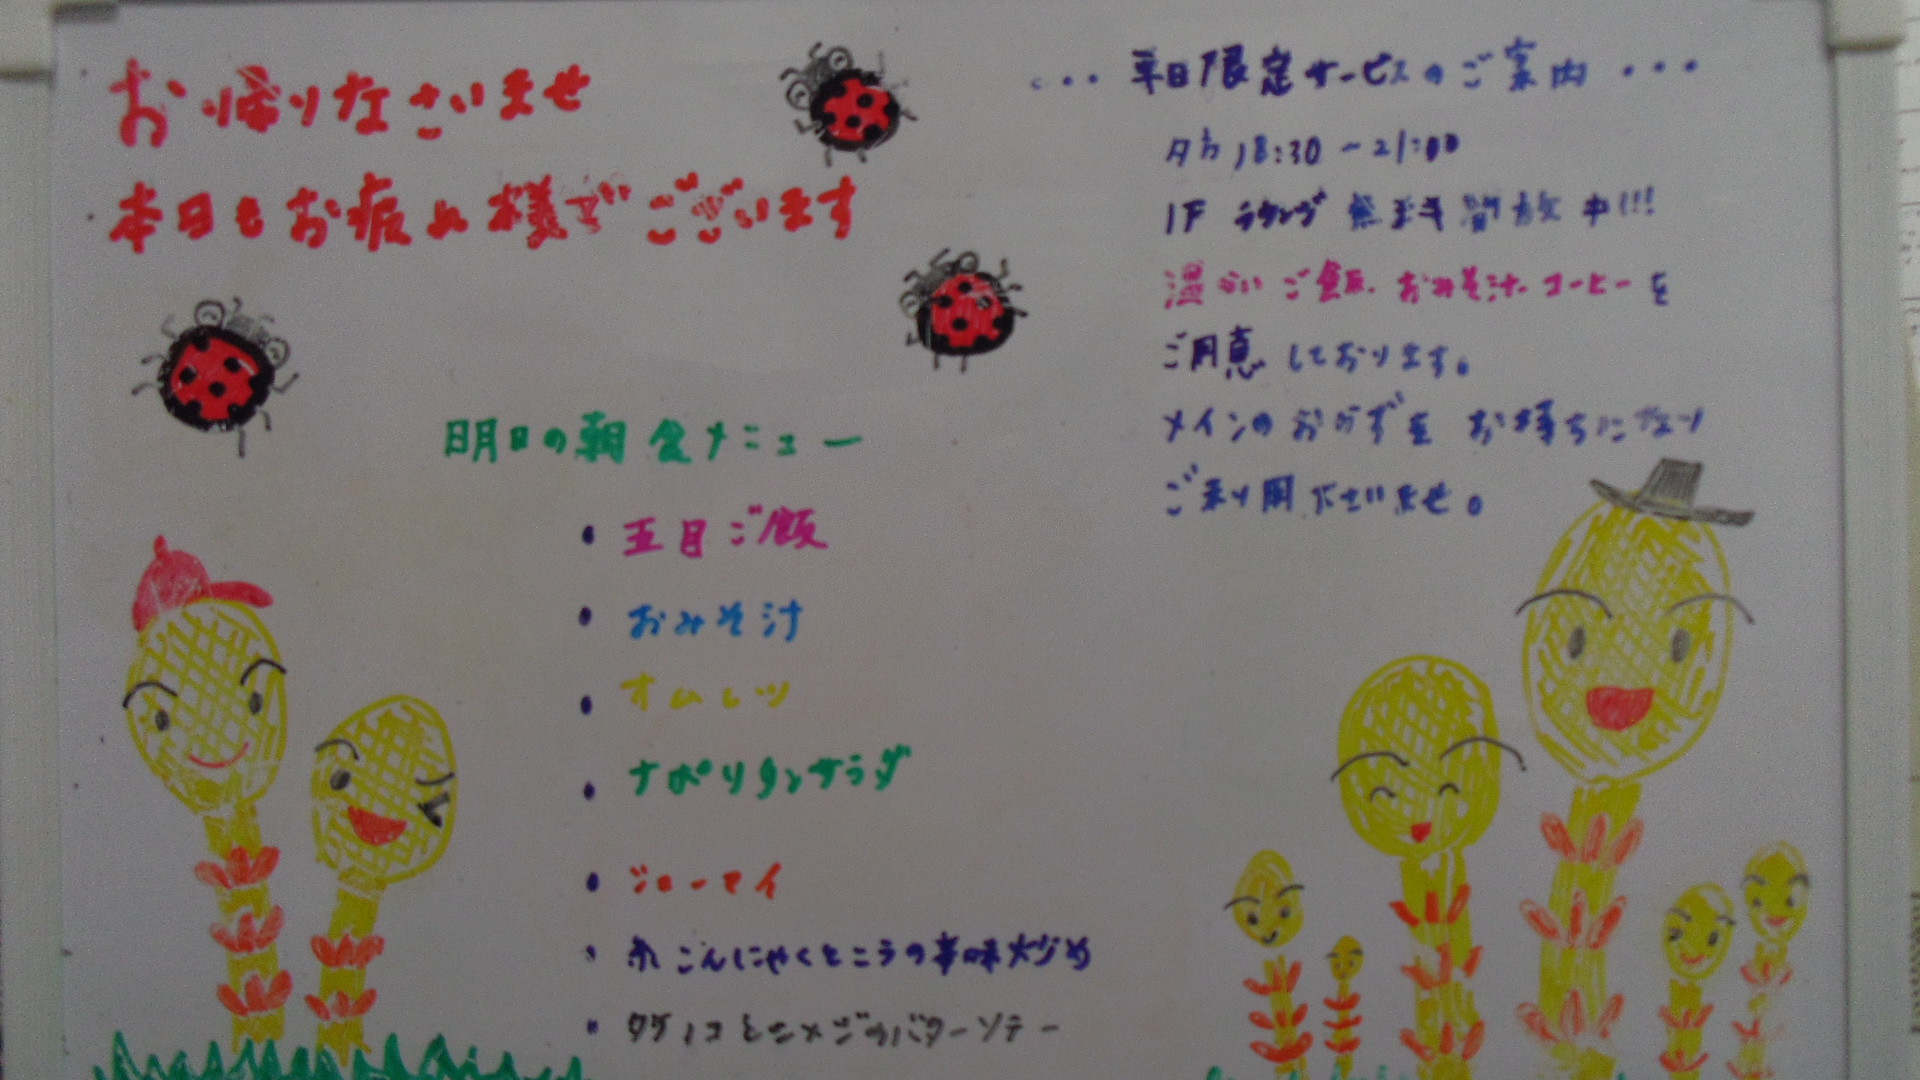 お帰りなさいませ
本日もお疲れ様でございます
明日の朝食メニュー
・五目ご飯
・おみそ汁
・オムレツ
・ナポリタンサラダ
・シューマイ
・糸こんにゃくと の辛味炒め
・タケノコとシメジのバターソテー
・・・平日限定サービスのご案内・・・
夕方18:30～21:00
1F ラウンジ 無料開放中!!!
温かいご飯、おみそ汁、コーヒーを
ご用意しております。
メインのおかずをお持ちになり
ご利用下さいませ。